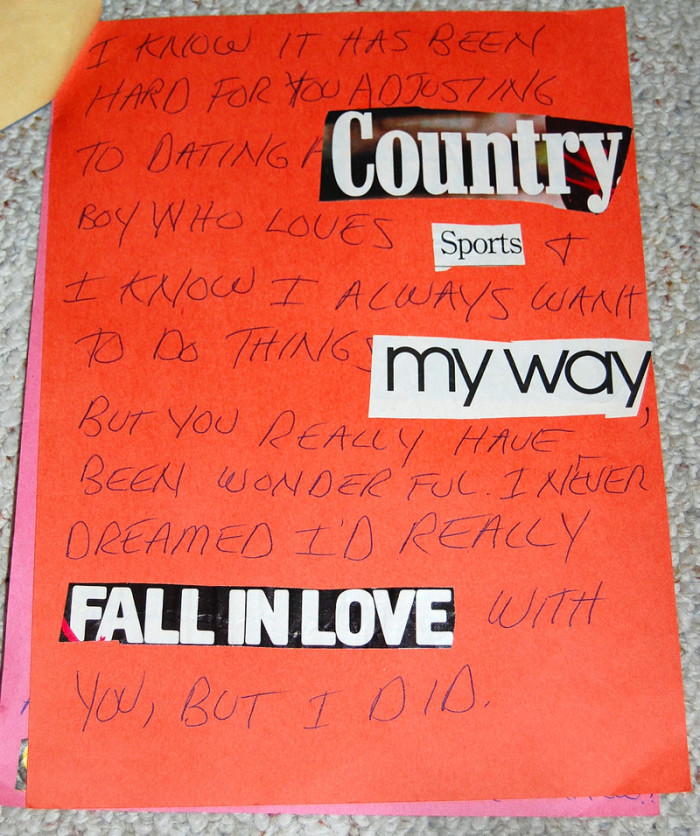 I KNOW IT HAS BEEN
HARD FOR YOU ADJUSTING
TO DATING A Country
BOY WHO LOVES Sports &
I KNOW I ALWAYS WANT
TO DO THINGS my way,
BUT YOU REALLY HAVE
BEEN WONDERFUL. I NEVER
DREAMED I'D REALLY
FALL IN LOVE WITH
YOU, BUT I DID.